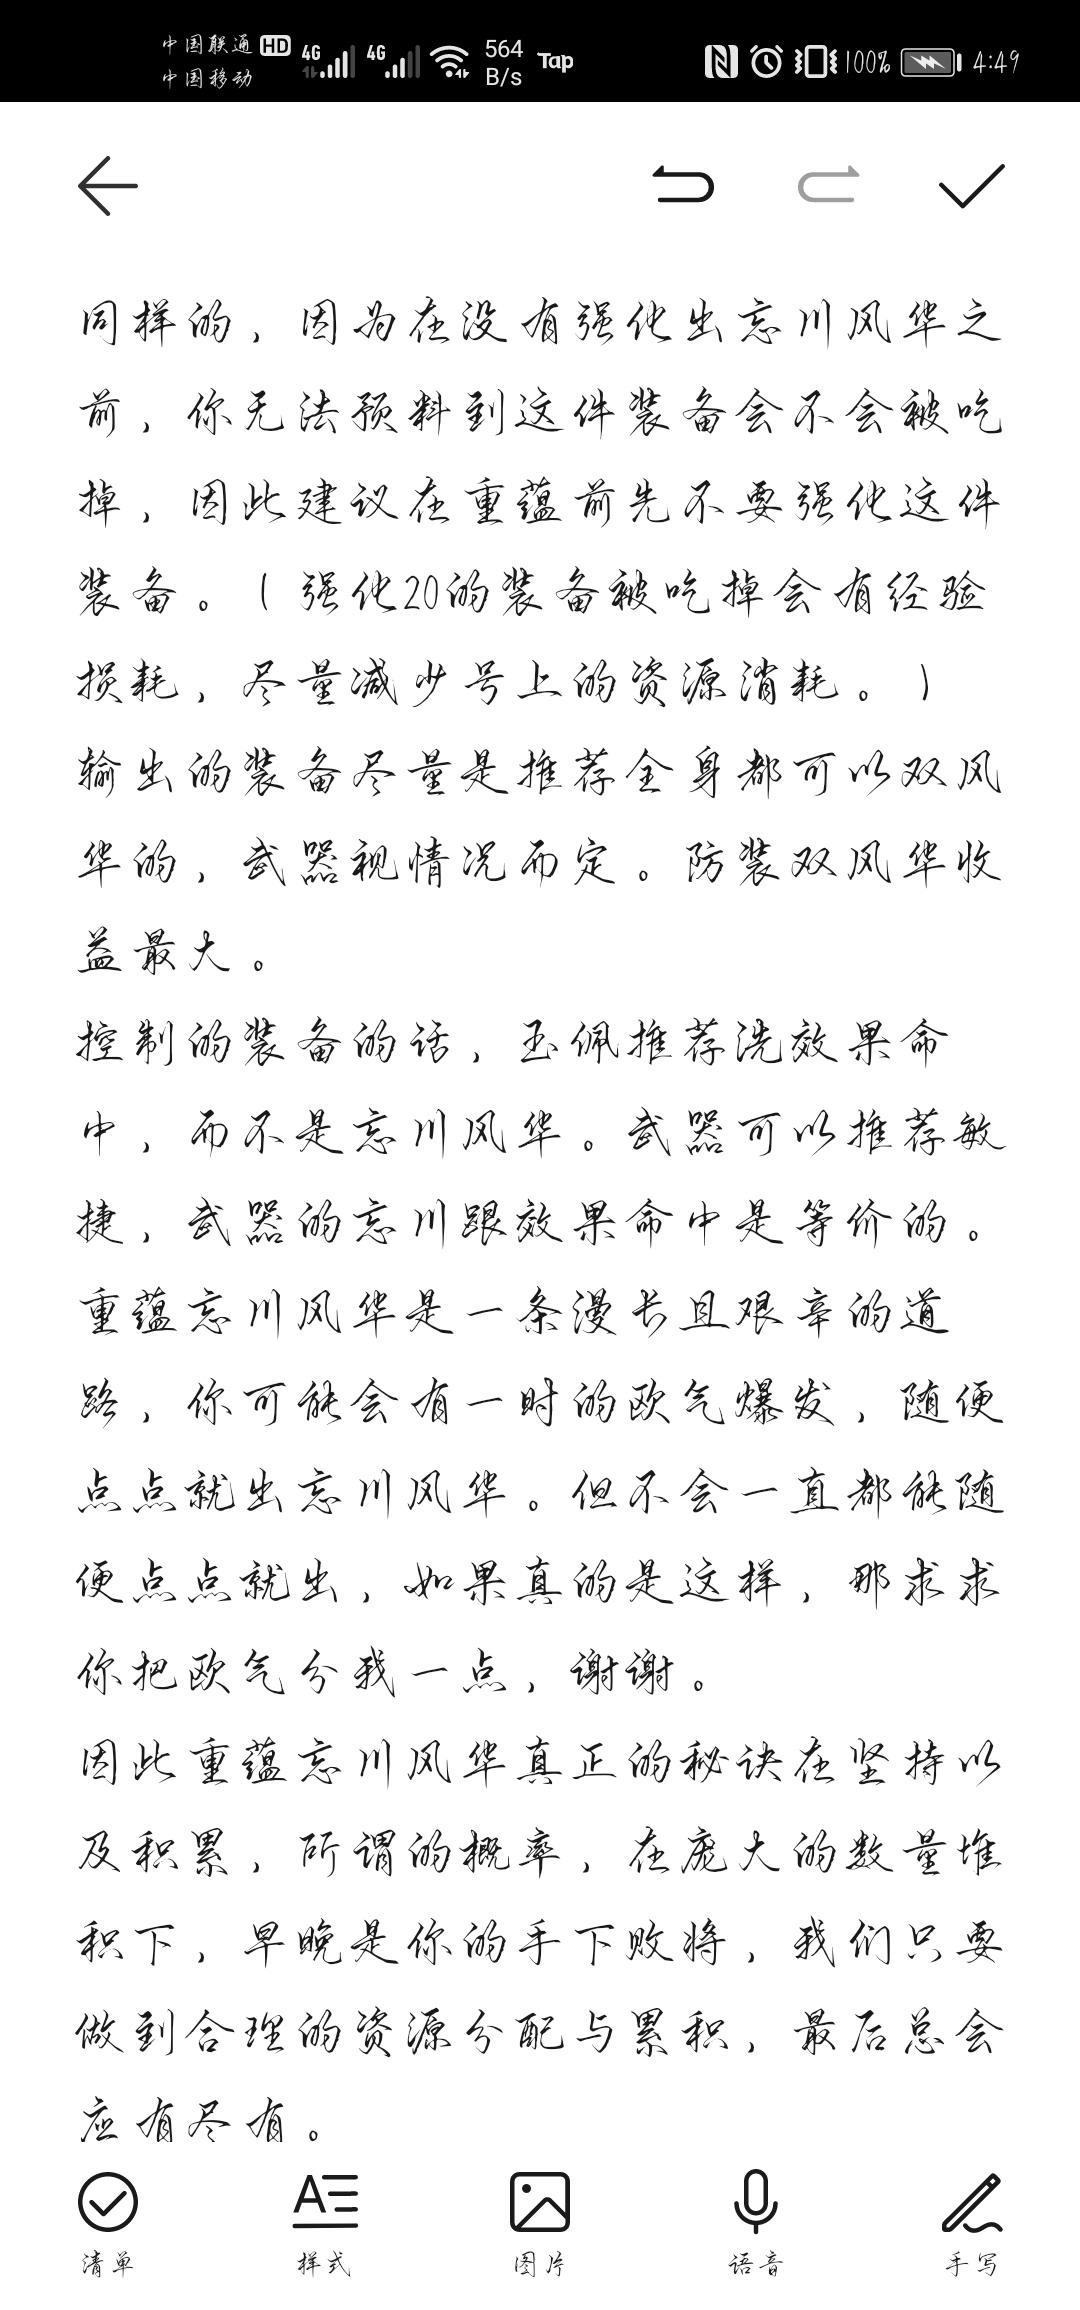 中国联通 HD 4G 4G 564 Tap 100% 4:49
中国移动 B/s
同样的，因为在没有强化出忘川风华之
前，你无法预料到这件装备会不会被吃
掉，因此建议在重蕴前先不要强化这件
装备。（强化20的装备被吃掉会有经验
损耗，尽量减少号上的资源消耗。）
输出的装备尽量是推荐全身都可以双风
华的，武器视情况而定。防装双风华收
益最大。
控制的装备的话，玉佩推荐洗效果命
中，而不是忘川风华。武器可以推荐敏
捷，武器的忘川跟效果命中是等价的。
重蕴忘川风华是一条漫长且艰辛的道
路，你可能会有一时的欧气爆发，随便
点点就出忘川风华。但不会一直都能随
便点点就出，如果真的是这样，那求求
你把欧气分我一点，谢谢。
因此重蕴忘川风华真正的秘诀在坚持以
及积累，所谓的概率，在庞大的数量堆
积下，早晚是你的手下败将，我们只要
做到合理的资源分配与累积，最后总会
应有尽有。
清单 样式 图片 语音 手写